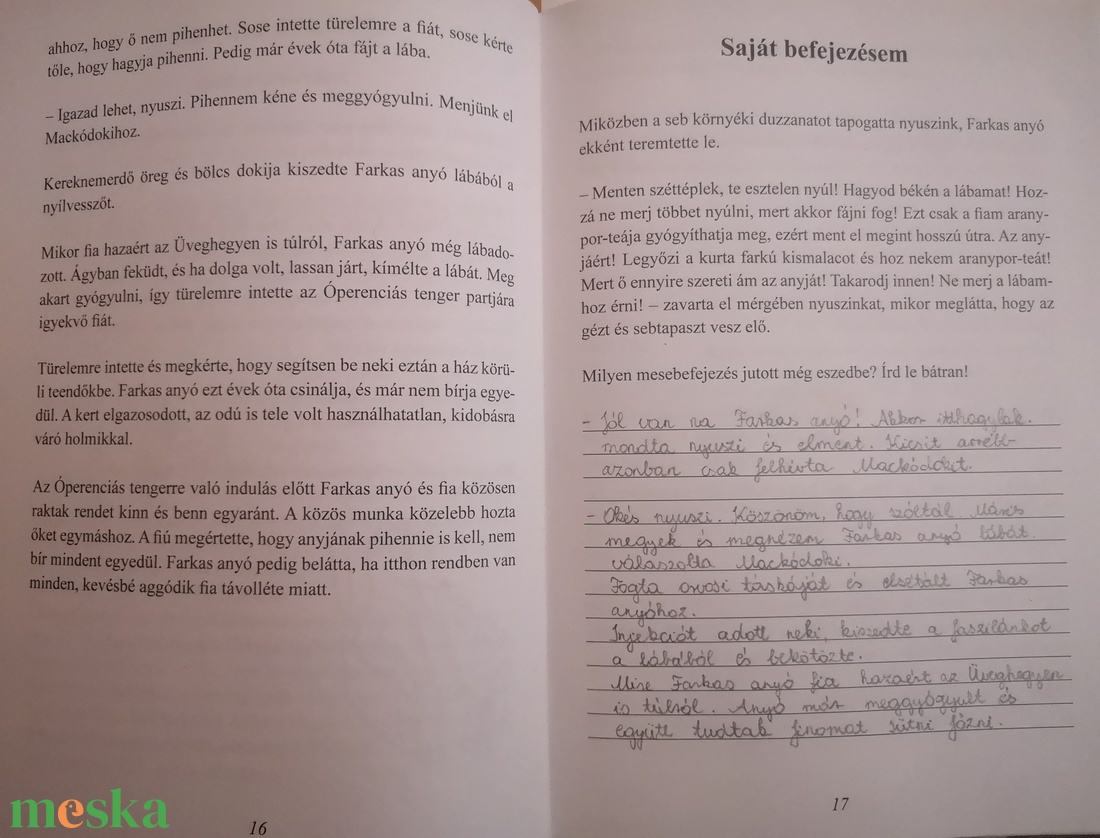 ahhoz, hogy ő nem pihenhet. Sose intette türelemre a fiát, sose kérte
tőle, hogy hagyja pihenni. Pedig már évek óta fájt a lába.
– Igazad lehet, nyuszi. Pihennem kéne és meggyógyulni. Menjünk el
Mackódokihoz.
Kereknemerdő öreg és bölcs dokija kiszedte Farkas anyó lábából a
nyílvesszőt.
Mikor fia hazaért az Üveghegyen is túlról, Farkas anyó még lábado-
zott. Ágyban feküdt, és ha dolga volt, lassan járt, kímélte a lábát. Meg
akart gyógyulni, így türelemre intette az Óperenciás tenger partjára
igyekvő fiát.
Türelemre intette és megkérte, hogy segítsen be neki eztán a ház körü-
li teendőkbe. Farkas anyó ezt évek óta csinálja, és már nem bírja egye-
dül. A kert elgazosodott, az odú is tele volt használhatatlan, kidobásra
váró holmikkal.
Az Óperenciás tengerre való indulás előtt Farkas anyó és fia közösen
raktak rendet kinn és benn egyaránt. A közös munka közelebb hozta
őket egymáshoz. A fiú megértette, hogy anyjának pihennie is kell, nem
bír mindent egyedül. Farkas anyó pedig belátta, ha itthon rendben van
minden, kevésbé aggódik fia távolléte miatt.
16
Saját befejezésem
Miközben a seb környéki duzzanatot tapogatta nyuszink, Farkas anyó
ekként teremtette le.
– Menten széttéplek, te esztelen nyúl! Hagyod békén a lábamat! Hoz-
zá ne merj többet nyúlni, mert akkor fájni fog! Ezt csak a fiam arany-
por-teája gyógyíthatja meg, ezért ment el megint hosszú útra. Az any-
jáért! Legyőzi a kurta farkú kismalacot és hoz nekem aranypor-teát!
Mert ő ennyire szereti ám az anyját! Takarodj innen! Ne merj a lábam-
hoz érni! – zavarta el mérgében nyuszinkat, mikor meglátta, hogy az
gézt és sebtapaszt vesz elő.
Milyen mesebefejezés jutott még eszedbe? Írd le bátran!
- Jól van na Farkas anyó! Akkor itthagylak.
mondta nyuszi és elment. Kicsit arrébb
azonban csak felhívta Mackódokit.
- Okés nyuszi. Köszönöm, hogy szóltál. Máris
megyek és megnézem Farkas anyó lábát.
válaszolta Mackódoki.
Fogta orvosi táskáját és elsétált Farkas
anyóhoz.
Injekciót adott neki, kiszedte a faszilánkot
a lábából és bekötözte.
Mire Farkas anyó fia hazaért az Üveghegyen
is túlról. Anyó már meggyógyult és
együtt tudtak finomat sütni főzni.
17
meska